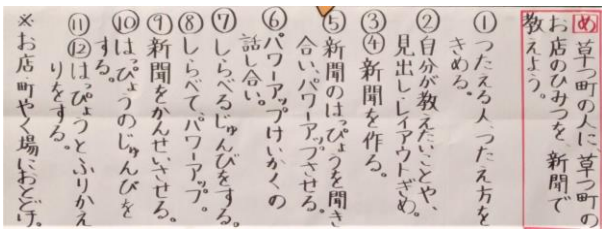 め 草つ町の人に草つ町の
お店のひみつを、新聞で
教えよう。
① つたえる人、つたえ方を
きめる。
② 自分が教えたいことや、
見出し・レイアウトぎめ。
③④ 新聞を作る。
⑤ 新聞のはっぴょうを聞き
合い、パワーアップさせる。
⑥ パワーアップけいかくの
話し合い。
⑦ しらべるじゅんびをする。
⑧ しらべて、パワーアップ。
⑨ 新聞をかんせいさせる。
⑩ はっぴょうのじゅんびを
する。
⑪⑫ はっぴょうとふりかえ
りをする。
※お店・町やく場におとどけ。